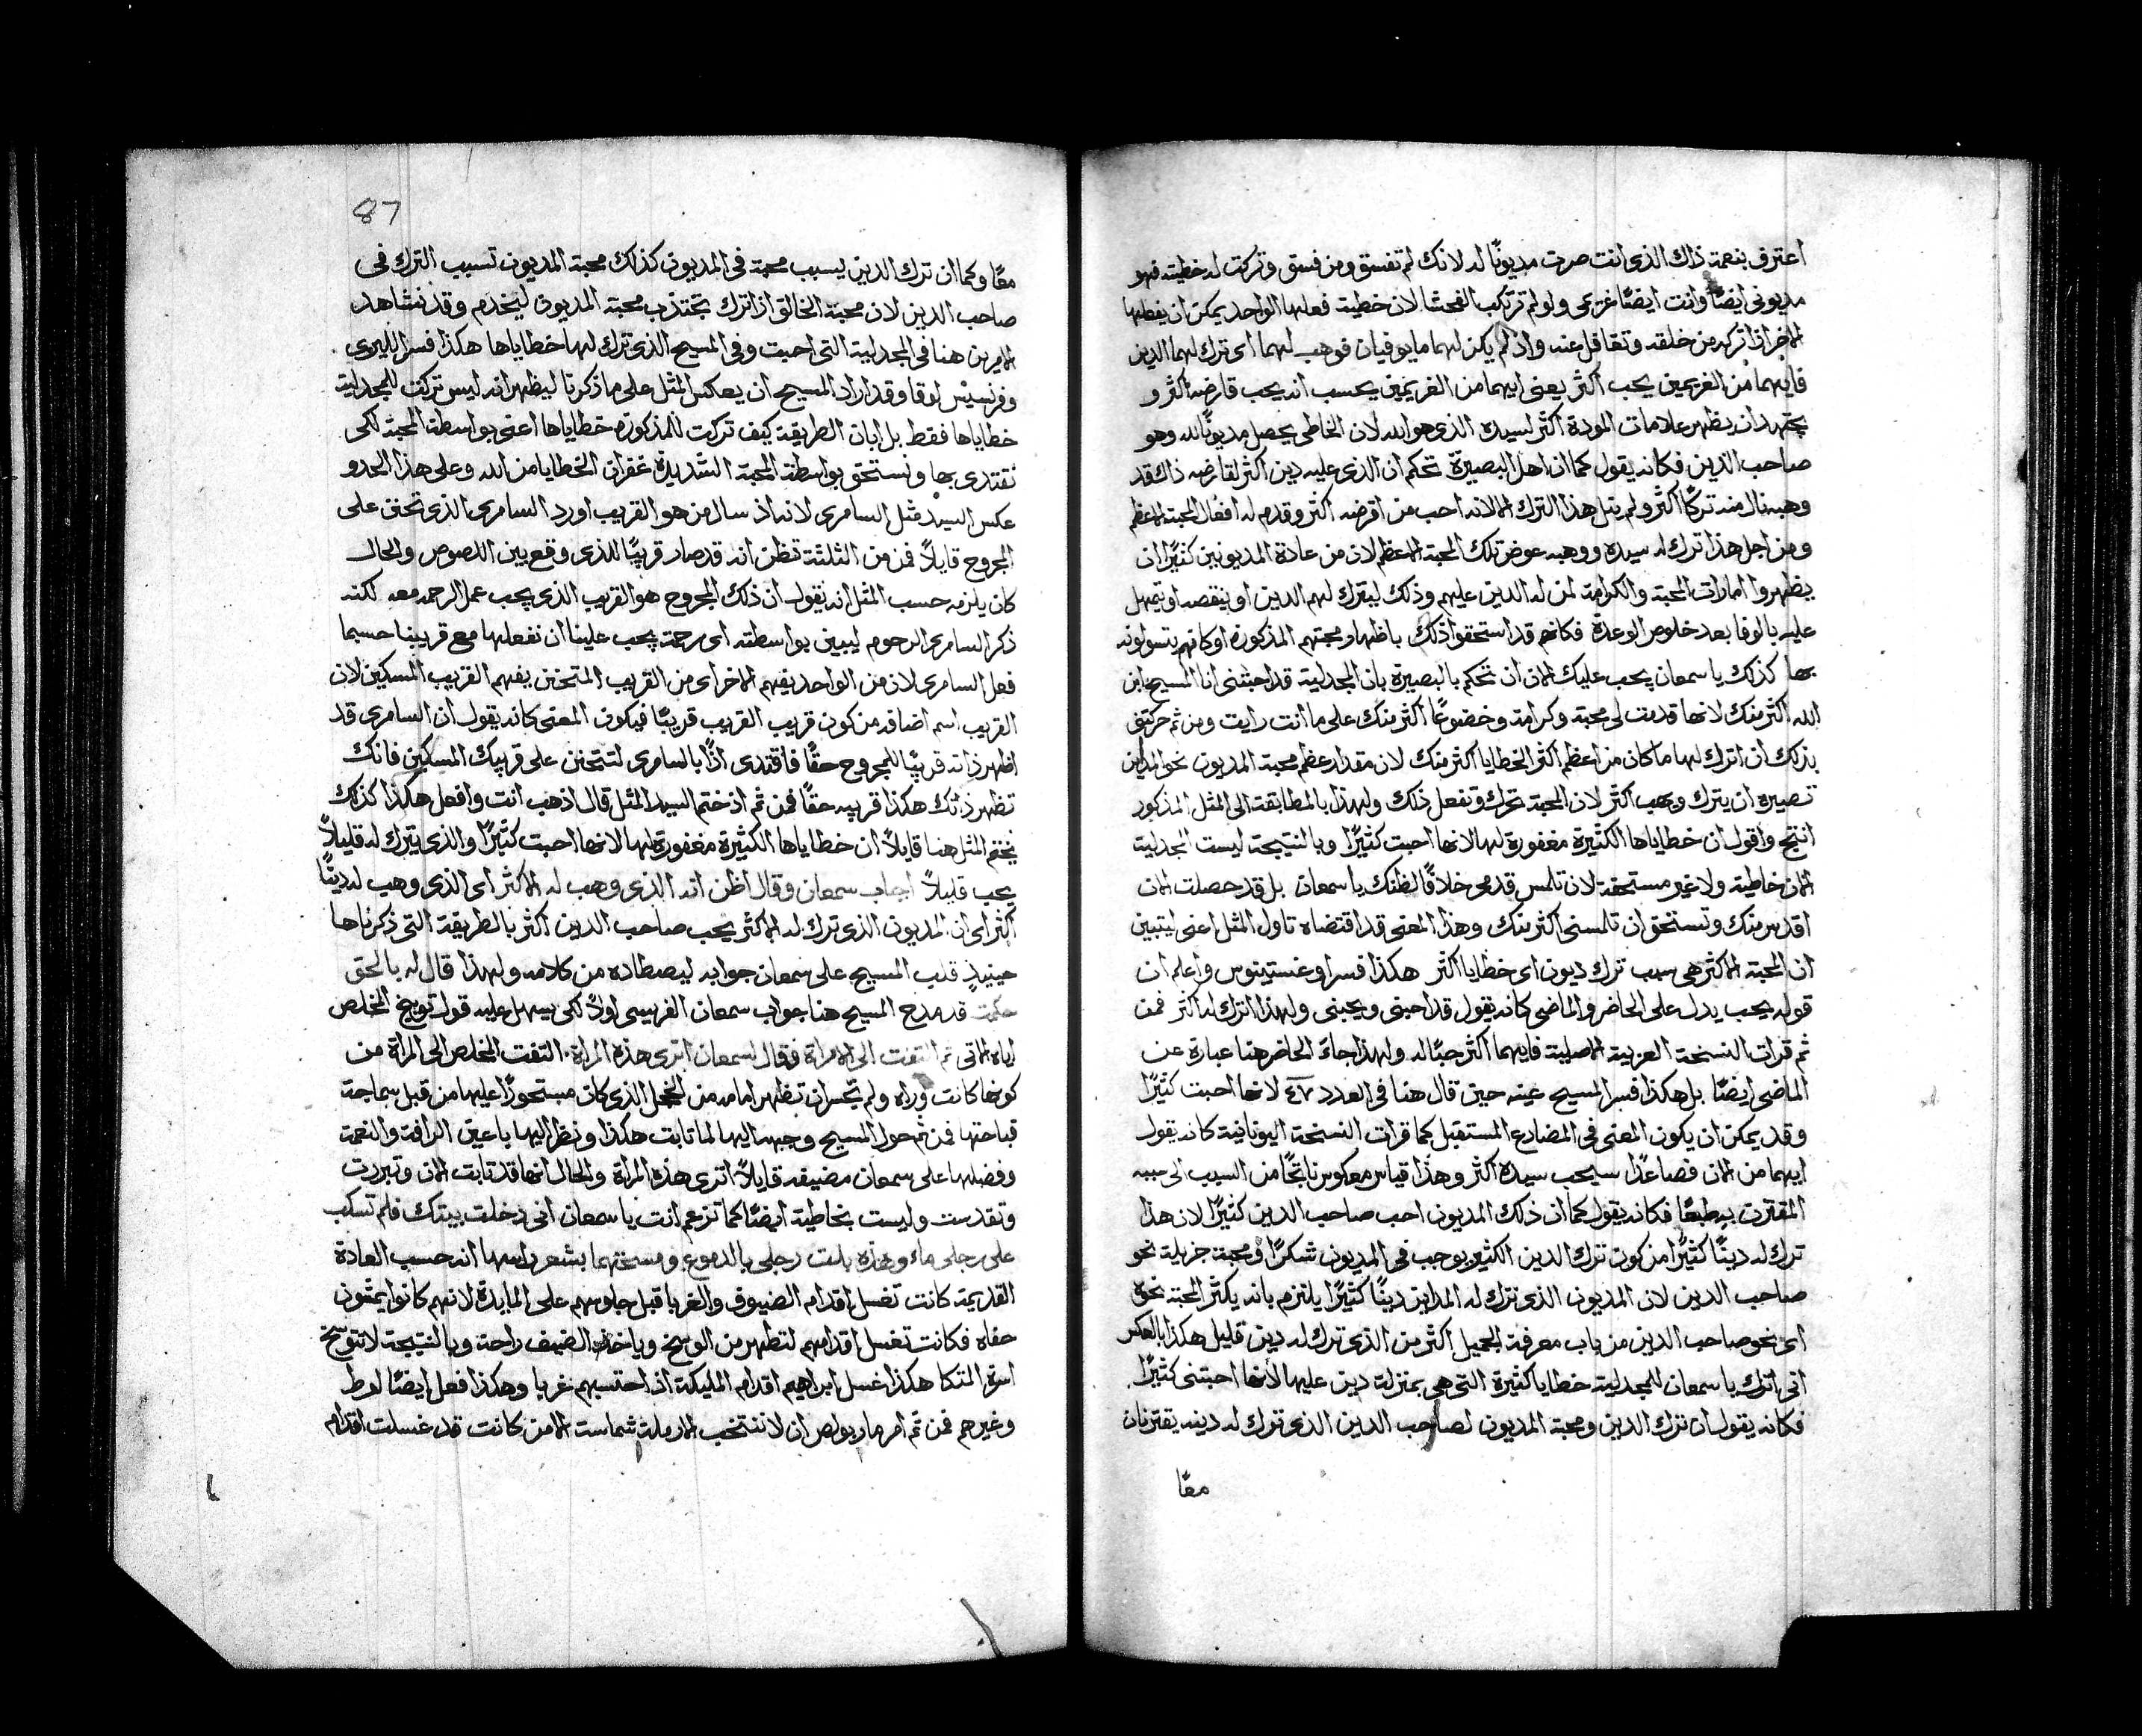 اعترف بنعمة ذاك الذى انت صرت مديونًا له لانك لم تفسق ومن فسق وتركت له خطيته فهو
مديونى ايضًا وانت ايضًا غريمى ولو لم ترتكب الفحشا لان خطية فعلها الواحد يمكن ان يفعلها
الاخر اذا تركه من خلقه وتغافل عنه واذ لم يكن لهما ما يوفيان فوهب لهما اى ترك لهما الدين
فايهما من الغريمين يحب اكثر يعنى ايهما من الغريمين يحسب انه يحب قارضه اكثر و
يجتهد ان يظهر علامات المودة اكثر لسيده الذى هو الله لان الخاطى يحصل مديونًا لله وهو
صاحب الدين فكانه يقول كما ان اهل البصيرة تحكم ان الذى عليه دين اكثر لقارضه ذاك قد
وهبه نال منه تركًا اكثر ولم ينل هذا الترك الا لانه احب من اقرضه اكثر وقدم له افعال المحبة الاعظم
ومن اجل هذا ترك له سيده ووهبه عوض تلك المحبة الاعظم لان من عادة المديونين كثيرًا ان
يظهروا امارات المحبة والكرامة لمن له الدين عليهم وذلك ليترك لهم الدين او ينقصه او يتمهل
عليه بالوفا بعد خلوص الوعدة فكانهم قد استحقوا ذلك باظهار محبتهم المذكورة او كانهم يتسولونه
بها كذلك يا سمعان يجب عليك الان ان تحكم بالبصيرة بان المجدلية قد احبتنى انا المسيح ابن
الله اكثر منك لانها قدمت لى محبة وكرامة وخضوعًا اكثر منك على ما انت رايت ومن ثم حركتنى
بذلك ان اترك لها ما كان من اعظم اكثر الخطايا اكثر منك لان مقدار عظم محبة المديون نحو المداين
تصيره ان يترك ويهب اكثر لان المحبة تحرك وتفعل ذلك ولهذا بالمطابقة الى المثل المذكور
انتج واقول ان خطاياها الكثيرة مغفورة لها لانها احبت كثيرًا وبالنتيجة ليست المجدلية
الان خاطية ولا غير مستحقة لان تلمس قدمى خلافًا لظنك يا سمعان بل قد حصلت الان
اقدس منك وتستحق ان تلمسنى اكثر منك وهذا المعنى قد اقتضاه تاول المثل اعنى ليتبين
ان المحبة الاكثر هى سبب ترك ديون اى خطايا اكثر هكذا فسر اوغستينوس واعلم ان
قوله يحب يدل على الحاضر والماضى كانه يقول قد احبنى ويحبنى ولهذا اترك له اكثر فمن
ثم قرات النسخة العربية الاصلية فايهما اكثر حبًا له ولهذا جاء الحاضر هنا عبارة عن
الماضى ايضًا بل هكذا فسر المسيح عينه حين قال هنا فى العدد ٤٧ لانها احبت كثيرًا
وقد يمكن ان يكون المعنى فى المضارع المستقبل كما قرات النسخة اليونانية كانه يقول
ايهما من الان فصاعدًا سيحب سيده اكثر وهذا قياس معكوس ناتجًا من السبب الى
المقترن به طبعًا فكانه يقول كما ان ذلك المديون احب صاحب الدين كثيرًا لان هذا
ترك له دينًا كثيرًا من كون ترك الدين الكثير يوجب فى المديون شكرًا ومحبة جزيلة نحو
صاحب الدين لان المديون الذى ترك له المداين دينًا كثيرًا يلتزم بانه يكثر المحبة نحوه
اى نحو صاحب الدين من باب معرفة الجميل اكثر من الذى ترك له دين قليل هكذا بالعكس
انى اترك يا سمعان للمجدلية خطايا كثيرة التى هى بمنزلة دين عليها لانها احبتنى كثيرًا
فكانه يقول ان ترك الدين ومحبة المديون لصاحب الدين الذى ترك له دينه يقترنان
معًا
87
معًا وكما ان ترك الدين يسبب محبة فى المديون كذلك محبة المديون تسبب الترك فى
صاحب الدين لان محبة الخالق اذا ترك تجتذب محبة المديون ليخدم وقد نشاهد
الامرين هنا فى المجدلية التى احبت وفى المسيح الذى ترك لها خطاياها هكذا فسر الليرى
وفرنسيس لوقا وقد اراد المسيح ان يعكس المثل على ما ذكرنا ليظهر انه ليس تركت للمجدلية
خطاياها فقط بل ابان الطريقة كيف تركت للمذكورة خطاياها اعنى بواسطة المحبة لكى
نقتدى بها ونستحق بواسطة المحبة الشديدة غفران الخطايا من الله وعلى هذا الحدو
عكس السيد مثل السامرى لانه اذ سال من هو القريب اورد السامرى الذى تحنن على
المجروح قايلاً فمن من الثلثة تظن انه قد صار قريبًا للذى وقع بين اللصوص والحال
كان يلزمه حسب المثل انه يقول ان ذلك المجروح هو القريب الذى يجب عمل الرحمه معه لكنه
ذكر السامرى الرحوم ليبين بواسطته اى رحمة يجب علينا ان نفعلها مع قريبنا حسبما
فعل السامرى لان من الواحد يفهم الاخر اى من القريب المتحنن يفهم القريب المسكين لان
القريب اسم اضافه من كون قريب القريب قريبًا فيكون المعنى كانه يقول ان السامرى قد
اظهر ذاته قريبًا للمجروح حقًا فاقتدى اذًا بالسامرى لتتحنن على قريبك المسكين فانك
تظهر ذاتك هكذا قريبه حقًا فمن ثم اذ ختم السيد المثل قال اذهب انت وافعل هكذا كذلك
يختم المثل هنا قايلاً ان خطاياها الكثيرة مغفورة لها لانها احبت كثيرًا والذى يترك له قليلاً
يحب قليلاً اجاب سمعان وقال اظن انه الذى وهب له الاكثر اى الذى وهب له دينًا
اكثر اى ان المديون الذى ترك له الاكثر يحب صاحب الدين اكثر بالطريقة التى ذكرناها
حينيذٍ قلب المسيح على سمعان جوابه ليصطاده من كلامه ولهذا قال له بالحق
حكمت قد مدح المسيح هنا جواب سمعان الفريسى اولاً لكى يسهل عليه قول توبيخ المخلص
اياه الاتى ثم التفت الى الامراة فقال لسمعان اترى هذه المراة. التفت المخلص الى المراة من
كونها كانت وراه ولم تجسر ان تظهر امامه من الخجل الذى كان مستحوزًا عليها من قبل سماجة
قباحتها فمن ثم حول المسيح وجهه اليها لما تابت هكذا ونظر اليها باعين الرافة والنعمة
وفضلها على سمعان مضيفه قايلاً اترى هذه المراة والحال انها قد تابت الان وتبررت
وتقدست وليست بخاطية ايضًا كما تزعم انت يا سمعان انى دخلت بيتك فلم تسكب
على رجلى ماء وهذه بلت رجلى بالدموع ومسحتهما بشعر راسها انه حسب العادة
القديمة كانت تغسل اقدام الضيوف والغربا قبل جلوسهم على المايدة لانهم كانوا يمشون
حفاه فكانت تغسل اقدامهم لتطهر من الوسخ وياخذ الضيف راحة وبالنتيجة لا تتوسخ
اسرة المتكا هكذا غسل ابراهيم اقدام المليكة اذ احتسبهم غربا وهكذا فعل ايضًا لوط
وغيرهم فمن ثم امر مار بولص ان لا تنتخب الارملة شماسة الا من كانت قد غسلت اقدام